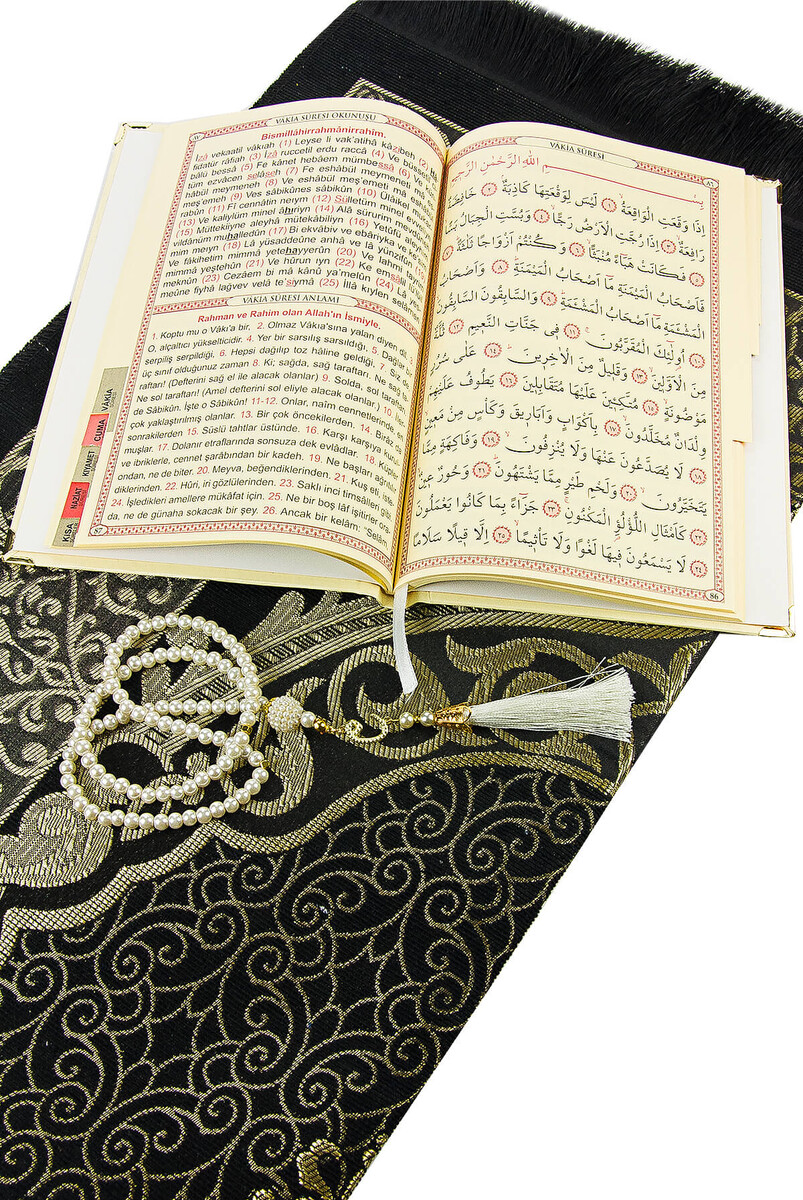 VAKIA SÛRESİ OKUNUŞU
Bismillâhirrahmânirrahîm.
İzâ vekaatil vâkıah (1) Leyse li vak'atihâ kâzibeh (2)
lidatür râfiah (3) İzâ ruccetil erdu raccâ (4) Ve büsse
bâlü bessâ (5) Fe kânet hebâem mümbessâ (6) Ve
tüm ezvâcen selâseh (7) Fe eshâbül meymeneti
hâbül meymeneh (8) Ve eshâbül meş'emeti mâ
meş'emeh (9) Ves sâbikûnes sâbikûn (10) Ülâikel
rabûn (11) Fî cennâtin neıym (12) Sülletüm minel
(13) Ve kaliylüm minel âhıriyn (14) Alâ sürurim mevdûneh
(15) Müttekiiyne aleyhâ mütekâbiliyn (16) Yetûfü aleyhim
vildânüm muhalledûn (17) Bi ekvâbiv ve ebâriyka ve
mim meıyn (18) Lâ yüsaddeûne anhâ ve lâ yünzifûn
Ve fâkihetim mimmâ yetehayyerûn (20) Ve lahmi
mimmâ yeştehûn (21) Ve hûrun ıyn (22) Ke emsâlil
meknûn (23) Cezâem bi mâ kânû ya'melûn (24) Lâ
meûne fiyhâ lağvev velâ te'siymâ (25) İllâ kıylen
VAKIA SÛRESİ ANLAMI
Rahman ve Rahim olan Allah'ın İsmiyle.
1. Koptu mu o Vâkı'a bir, 2. Olmaz Vâkıa'sına yalan diyen dil
O, alçaltıcı yükselticidir. 4. Yer bir sarsılış sarsıldığı, 5. Dağlar bir
serpiliş serpildiği, 6. Hepsi dağılıp toz hâline geldiği, 7. Siz de
üç sınıf olduğunuz zaman 8. Ki; sağda, sağ taraftarı. Ne sağ
taraftarı! (Defterini sağ el ile alacak olanlar) 9. Solda, sol taraftarı
Ne sol taraftarı! (Amel defterini sol eliyle alacak olanlar) 10.
de Sâbikûn. İşte o Sâbikûn! 11-12. Onlar, naîm cennetlerinde
çok yaklaştırılmış olanlar. 13. Bir çok öncekilerden. 14. Biraz da
sonrakilerden 15. Süslü tahtlar üstünde. 16. Karşı karşıya
muşlar. 17. Dolanır etraflarında sonsuza dek evlâdlar. 18. Küpler
ve ibriklerle, cennet şarâbından bir kadeh. 19. Ne başları ağrıtılır
ondan, ne de biter. 20. Meyva, beğendiklerinden. 21. Kuş eti,
diklerinden. 22. Hûri, iri gözlülerinden. 23. Saklı inci timsâlleri gibi
24. İşledikleri amellere mükâfat için. 25. Ne bir boş lâf işitirler ora-
da, ne de günaha sokacak bir şey. 26. Ancak bir kelâm; "Selâm
VAKIA
CUMA
KIYAMET
NAZİAT
KISA
VAKIA SÛRESİ
٨٦
بِسْمِ اللّٰهِ الرَّحْمٰنِ الرَّحِيمِ
اِذَا وَقَعَتِ الْوَاقِعَةُ ۙ ﴿١﴾ لَيْسَ لِوَقْعَتِهَا كَاذِبَةٌ ﴿٢﴾ خَافِضَةٌ
رَافِعَةٌ ﴿٣﴾ اِذَا رُجَّتِ الْاَرْضُ رَجًّا ﴿٤﴾ وَبُسَّتِ الْجِبَالُ بَسًّا
﴿٥﴾ فَكَانَتْ هَبَآءً مُنْبَثًّا ﴿٦﴾ وَكُنْتُمْ اَزْوَاجًا ثَلٰثَةً ﴿٧﴾
فَاَصْحَابُ الْمَيْمَنَةِ مَٓا اَصْحَابُ الْمَيْمَنَةِ ﴿٨﴾ وَاَصْحَابُ
الْمَشْـَٔمَةِ مَٓا اَصْحَابُ الْمَشْـَٔمَةِ ﴿٩﴾ وَالسَّابِقُونَ السَّابِقُونَ
﴿١٠﴾ اُولٰٓئِكَ الْمُقَرَّبُونَ ﴿١١﴾ فِي جَنَّاتِ النَّعِيمِ ﴿١٢﴾ ثُلَّةٌ
مِنَ الْاَوَّلِينَ ﴿١٣﴾ وَقَلِيلٌ مِنَ الْاٰخِرِينَ ﴿١٤﴾ عَلٰى سُرُرٍ
مَوْضُونَةٍ ﴿١٥﴾ مُتَّكِـِٔينَ عَلَيْهَا مُتَقَابِلِينَ ﴿١٦﴾ يَطُوفُ عَلَيْهِمْ
وِلْدَانٌ مُخَلَّدُونَ ﴿١٧﴾ بِاَكْوَابٍ وَاَبَارِيقَ وَكَأْسٍ مِنْ مَعِينٍ
﴿١٨﴾ لَا يُصَدَّعُونَ عَنْهَا وَلَا يُنْزِفُونَ ﴿١٩﴾ وَفَاكِهَةٍ مِمَّا
يَتَخَيَّرُونَ ﴿٢٠﴾ وَلَحْمِ طَيْرٍ مِمَّا يَشْتَهُونَ ﴿٢١﴾ وَحُورٌ عِينٌ
﴿٢٢﴾ كَاَمْثَالِ اللُّؤْلُؤِ الْمَكْنُونِ ﴿٢٣﴾ جَزَٓاءً بِمَا كَانُوا يَعْمَلُونَ
﴿٢٤﴾ لَا يَسْمَعُونَ فِيهَا لَغْوًا وَلَا تَأْثِيمًا ﴿٢٥﴾ اِلَّا قِيلًا سَلَامًا
86